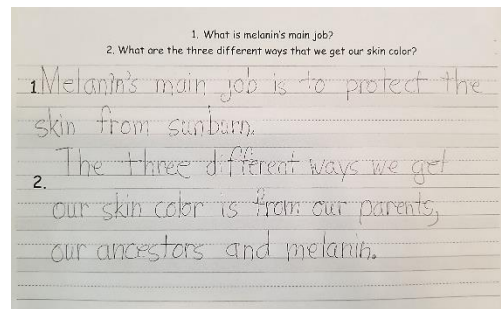 1. What is melanin's main job?
2. What are the three different ways that we get our skin color?
1 Melanin's main job is to protect the
skin from sunburn.
2. The three different ways we get
our skin color is from our parents,
our ancestors and melanin.